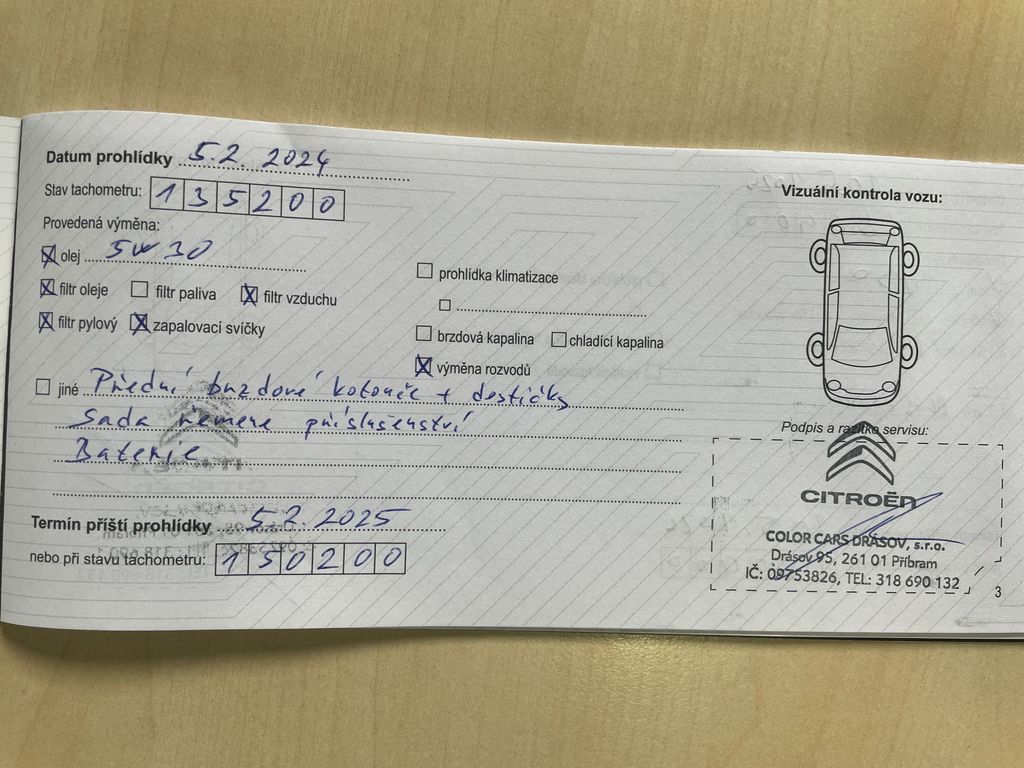 Datum prohlídky 5.2. 2024
Stav tachometru: 135200
Provedená výměna:
olej 5W30
filtr oleje filtr paliva filtr vzduchu
filtr pylový zapalovací svíčky
prohlídka klimatizace
brzdová kapalina chladící kapalina
výměna rozvodů
jiné Přední brzdové kotouče + destičky
Sada řemene příslušenství
Baterie
Termín příští prohlídky 5.2.2025
nebo při stavu tachometru: 150200
Vizuální kontrola vozu:
Podpis a razítko servisu:
CITROËN
COLOR CARS DRÁSOV, s.r.o.
Drásov 95, 261 01 Příbram
IČ: 09753826, TEL: 318 690 132
3